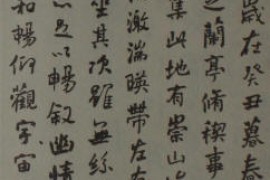 歲在癸丑暮春
之蘭亭脩稧事
集此地有崇山
激湍暎帶左右
坐其次雖無絲
足以暢敘幽情
和暢仰觀宇宙